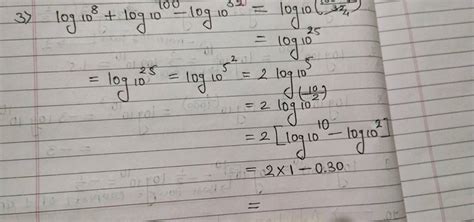 3) log10^8 + log10^100 - log10^32 = log10(32/4)
= log10^25
= log10^25 = log10^5^2 = 2 log10^5
= 2 log10^(10/2)
= 2 [log10^10 - log10^2]
= 2×1 - 0.30
=